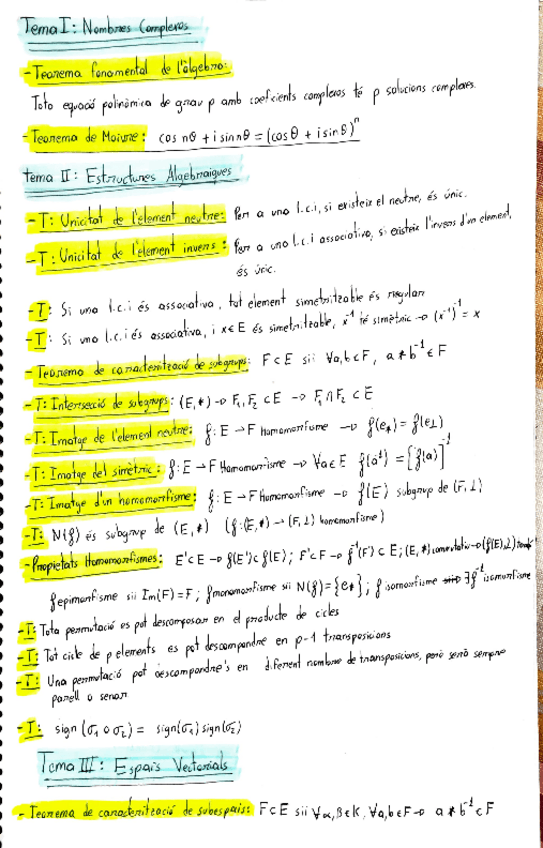 Tema I: Nombres Complexos
- Teorema fonamental de l'àlgebra:
Tota equació polinòmica de grau p amb coeficients complexos té p solucions complexes.
- Teorema de Moivre: cos nθ + i sin nθ = (cos θ + i sin θ)^n
tema II: Estructures Algebraiques
- T: Unicitat de l'element neutre: Per a una l.c.i, si existeix el neutre, és únic.
- T: Unicitat de l'element invers: Per a una l.c.i associativa, si existeix l'invers d'un element,
és únic.
- T: Si una l.c.i és associativa, tot element simetritzable és regular
- T: Si una l.c.i és associativa, i x∈E és simetritzable, x^-1 té simètric → (x^-1)^-1 = x
- Teorema de caracterització de subgrups: F⊂E sii ∀a,b∈F, a * b^-1 ∈ F
- T: Intersecció de subgrups: (E,*) → F₁, F₂ ⊂ E → F₁∩F₂ ⊂ E
- T: Imatge de l'element neutre: f: E→F Homomorfisme → f(e*) = f(e⊥)
- T: Imatge del simètric: f: E→F Homomorfisme → ∀a∈E f(a^-1) = [f(a)]^-1
- T: Imatge d'un homomorfisme: f: E→F Homomorfisme → f(E) subgrup de (F,⊥)
- T: N(f) és subgrup de (E,*) (f:(E,*)→(F,⊥) homomorfisme)
- Propietats Homomorfismes: E'⊂E → f(E')⊂f(E); F'⊂F → f^-1(F')⊂E; (E,*) commutatiu → (f(E),⊥)
f epimorfisme sii Im(F)=F; f monomorfisme sii N(f)={e*}; f isomorfisme ∃f^-1 isomorfisme
- T: Tota permutació es pot descomposar en el producte de cicles
- T: Tot cicle de p elements es pot descompondre en p-1 transposicions
- T: Una permutació pot descompondre's en diferent nombre de transposicions, però serà sempre
parell o senar.
- T: sign(σ₁ o σ₂) = sign(σ₁) sign(σ₂)
Tema III: Espais Vectorials
- Teorema de caracterització de subespais: F⊂E sii ∀α,β∈K, ∀a,b∈F → a * b^-1 ⊂ F